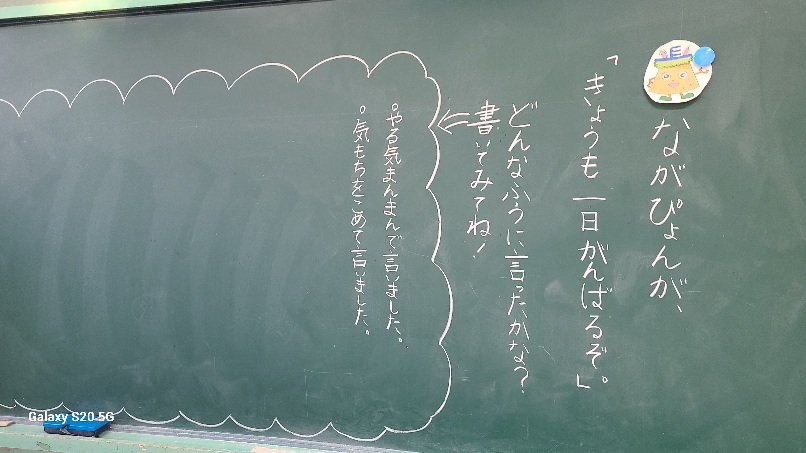 ながぴょんが、
「きょうも一日がんばるぞ。」
どんなふうに言ったかな?
書いてみてね!
○やる気まんまんで言いました。
○気もちをこめて言いました。
長
Galaxy S20 5G